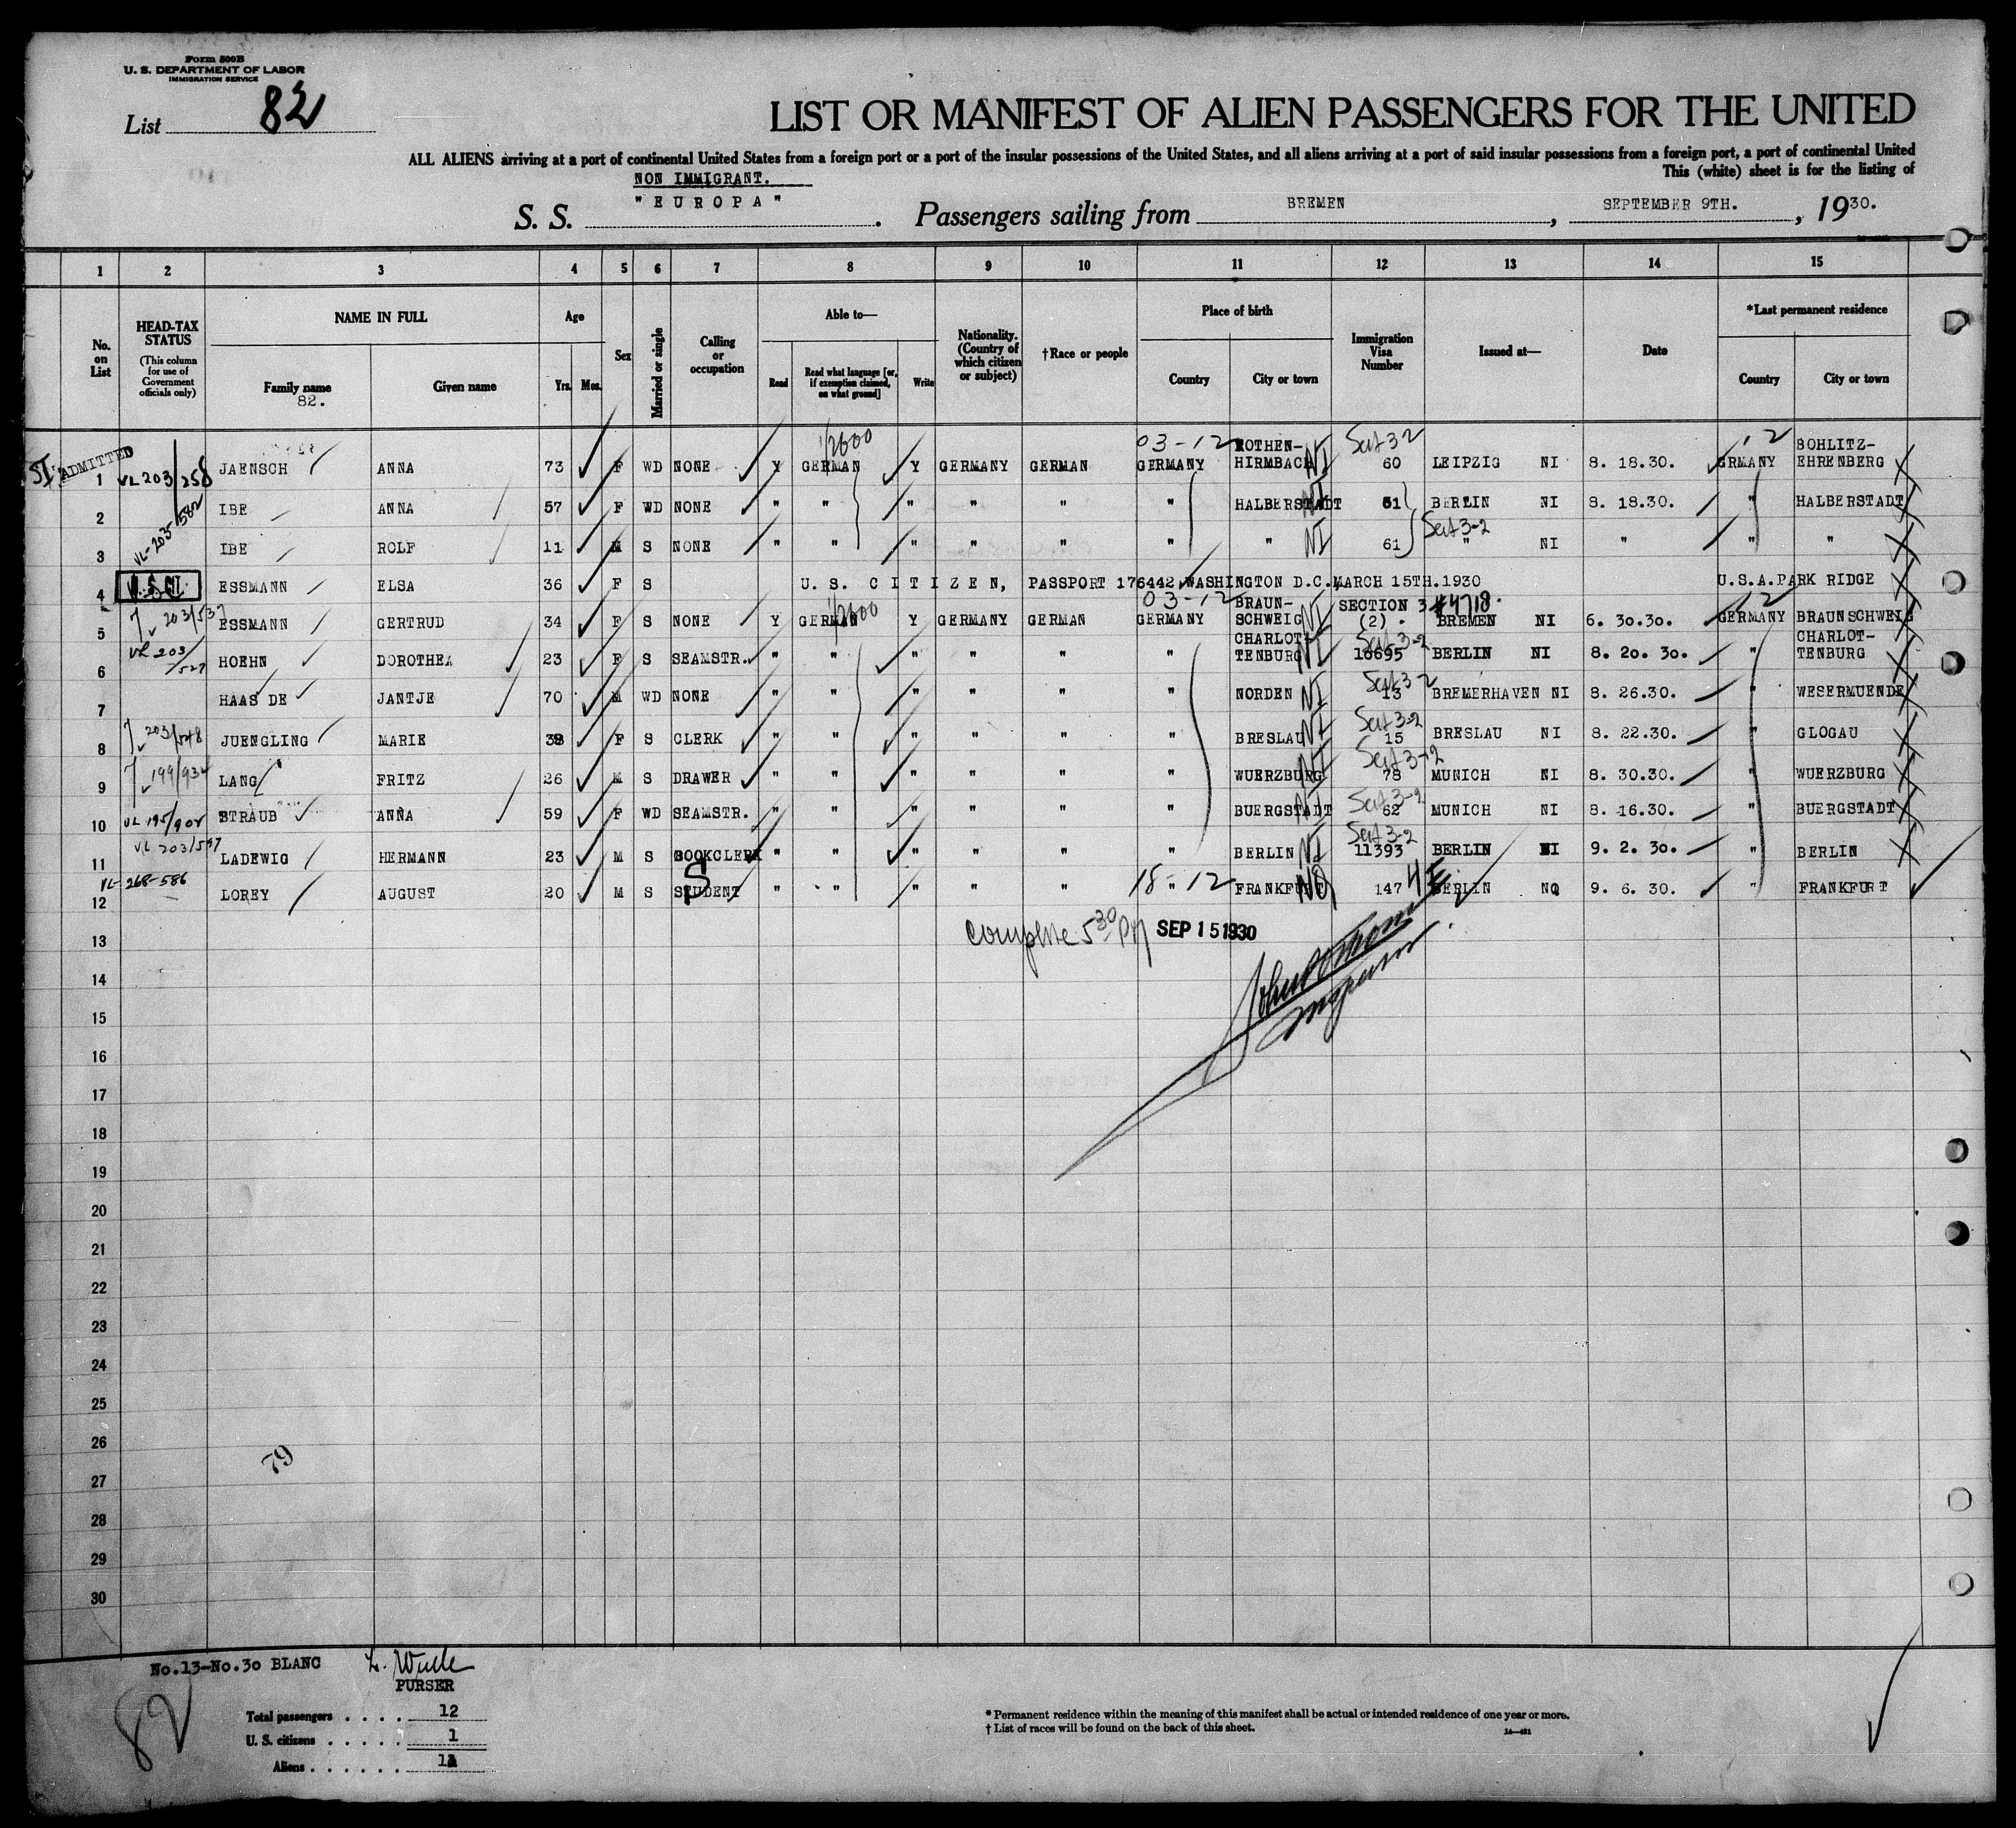 Form 500B
U. S. DEPARTMENT OF LABOR
IMMIGRATION SERVICE
List 82
LIST OR MANIFEST OF ALIEN PASSENGERS FOR THE UNITED
ALL ALIENS arriving at a port of continental United States from a foreign port or a port of the insular possessions of the United States, and all aliens arriving at a port of said insular possessions from a foreign port, a port of continental United
This (white) sheet is for the listing of
NON IMMIGRANT.
S. S. "EUROPA". Passengers sailing from BREMEN, SEPTEMBER 9TH., 1930.
1 2 3 4 5 6 7 8 9 10 11 12 13 14 15
No. on List
HEAD-TAX STATUS (This column for use of Government officials only)
NAME IN FULL Family name 82. Given name
Age Yrs. Mos.
Sex
Married or single
Calling or occupation
Able to— Read Read what language [or, if exemption claimed, on what ground] Write
Nationality. (Country of which citizen or subject)
†Race or people
Place of birth Country City or town
Immigration Visa Number
Issued at—
Date
*Last permanent residence Country City or town
ADMITTED
1 VL 203/258 JAENSCH ANNA 73 F WD NONE Y GERMAN Y GERMANY GERMAN 03-12 GERMANY ROTHEN-HIRMBACH NI Sect 3-2 60 LEIPZIG NI 8. 18.30. GRMANY BOHLITZ-EHRENBERG
2 IBE ANNA 57 F WD NONE " " " " " " HALBERSTADT NI 61 BERLIN NI 8. 18.30. " HALBERSTADT
3 VL-203/582 IBE ROLF 11 M S NONE " " " " " " " NI 61 Sect 3-2 " NI " " "
4 ESSMANN ELSA 36 F S U.S. CITIZEN, PASSPORT 176442 WASHINGTON D.C. MARCH 15TH.1930 U.S.A. PARK RIDGE
5 203/537 ESSMANN GERTRUD 34 F S NONE Y GERMAN Y GERMANY GERMAN 03-12 GERMANY BRAUN-SCHWEIG NI SECTION 3 (2). #4718. BREMEN NI 6. 30.30. GERMANY BRAUNSCHWEIG
6 VL 203/527 HOEHN DOROTHEA 23 F S SEAMSTR. " " " " " " CHARLOT-TENBURG NI Sect 3-2 10695 BERLIN NI 8. 20. 30. " CHARLOT-TENBURG
7 HAAS DE JANTJE 70 M WD NONE " " " " " " NORDEN NI Sect 3-2 13 BREMERHAVEN NI 8. 26.30. " WESERMUENDE
8 203/548 JUENGLING MARIE 38 F S CLERK " " " " " " BRESLAU NI Sect 3-2 15 BRESLAU NI 8. 22.30. " GLOGAU
9 199/932 LANG FRITZ 26 M S DRAWER " " " " " " WUERZBURG NI Sect 3-2 78 MUNICH NI 8. 30.30. " WUERZBURG
10 VL 195/902 STRAUB ANNA 59 F WD SEAMSTR. " " " " " " BUERGSTADT NI Sect 3-2 62 MUNICH NI 8. 16.30. " BUERGSTADT
11 LADEWIG HERMANN 23 M S BOOKCLERK " " " " " " BERLIN NI Sect 3-2 11393 BERLIN NI 9. 2. 30. " BERLIN
12 VL-268-586 LOREY AUGUST 20 M S STUDENT " " " " " 18-12 " FRANKFURT NQ 147 4E BERLIN NQ 9. 6. 30. " FRANKFURT
complete 5 30 PM SEP 15 1930
13
14
15
16
17
18
19
20
21
22
23
24
25
26
27
28
29
30
79
No.13-No.30 BLANC
PURSER
82
Total passengers . . . . 12
U. S. citizens . . . . . 1
Aliens . . . . . . 11
* Permanent residence within the meaning of this manifest shall be actual or intended residence of one year or more.
† List of races will be found on the back of this sheet.